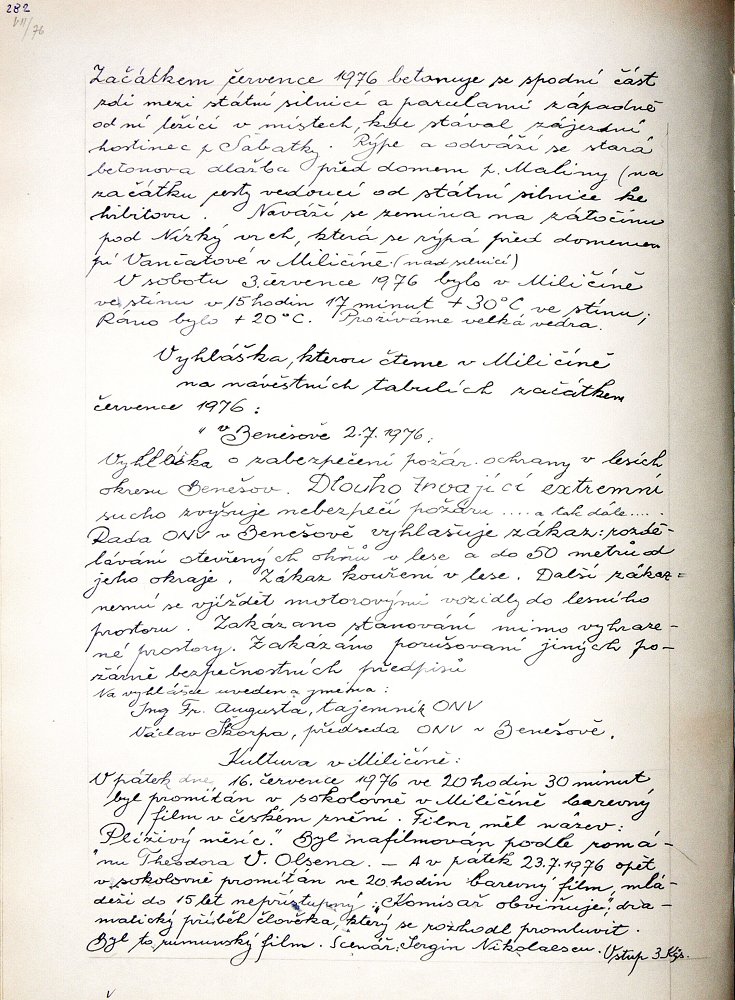 282
VII/76
Začátkem července 1976 betonuje se spodní část
zdi mezi státní silnicí a parcelami západně
od ní ležící v místech, kde stával zájezdní
hostinec p. Sabatky. Rýpe a odváží se stará
betonova dlažba před domem p. Maliny (na
začátku cesty vedoucí od státní silnice ke
hřbitovu. Naváží se zemina na zátočinu
pod Nízký vrch, která se rýpá před domem
pí Vančatové v Miličíně (nad silnicí)
V sobotu 3. července 1976 bylo v Miličíně
ve stínu v 15 hodin 17 minut + 30°C ve stínu;
Ráno bylo + 20°C. Prožíváme velká vedra.
Vyhláška, kterou čteme v Miličíně
na návěstních tabulích začátkem
července 1976:
" v Benešově 2.7.1976;
Vyhláška o zabezpečení požár. ochrany v lesích
okresu Benešov. Dlouho trvající extremní
sucho zvyšuje nebezpečí požáru ..... a tak dále.....
Rada ONV v Benešově vyhlašuje zákaz: rozdě-
lávání otevřených ohňů v lese a do 50 metrů od
jeho okraje. Zákaz kouření v lese. Další zákaz=
nesmí se vjíždět motorovými vozidly do lesního
prostoru. Zakázano stanování mimo vyhraze-
né prostory. Zakázáno porušovaní jiných po-
žárně bezpečnostních předpisů
Na vyhlášce uvedena jména:
Ing Fr. Augusta, tajemník ONV
Václav Škorpa, předseda ONV v Benešově.
Kultura v Miličíně:
V pátek dne 16. července 1976 ve 20 hodin 30 minut
byl promítán v sokolovně v Miličíně barevný
film v českém znění. Film měl název:
Plíživý měsíc." Byl nafilmován podle romá-
"nu Theodora V. Olsena. — A v pátek 23.7.1976 opět
v sokolovně promítán ve 20 hodin barevný film, mlá-
deži do 15 let nepřístupný: "Komisař obviňuje", dra-
matický příběh člověka, který se rozhodl promluvit.
Byl to rumunský film. Scenář: Sergin Nikolaescu. Vstup 3 Kčs.